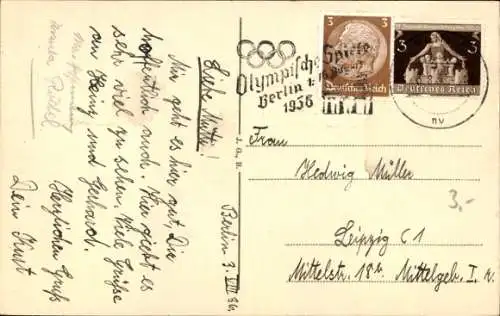 Olympische Spiele
Berlin 1.-16. Aug.
1936
3
Deutsches Reich
3 3
Deutsches Reich
nv
Frau
Hedwig Müller
Leipzig C 1
Mittelstr. 18 Mittelgeb. I
3,-
J. G. B.
Berlin 3. VIII. 36.
Liebe Mutter!
Mir geht es hier gut, Die
hoffentlich auch. Hier giebt es
sehr viel zu sehen. Viele Grüße
an Heinz und Gerhard.
Herzlichen Gruß
Dein Kurt
Ursula